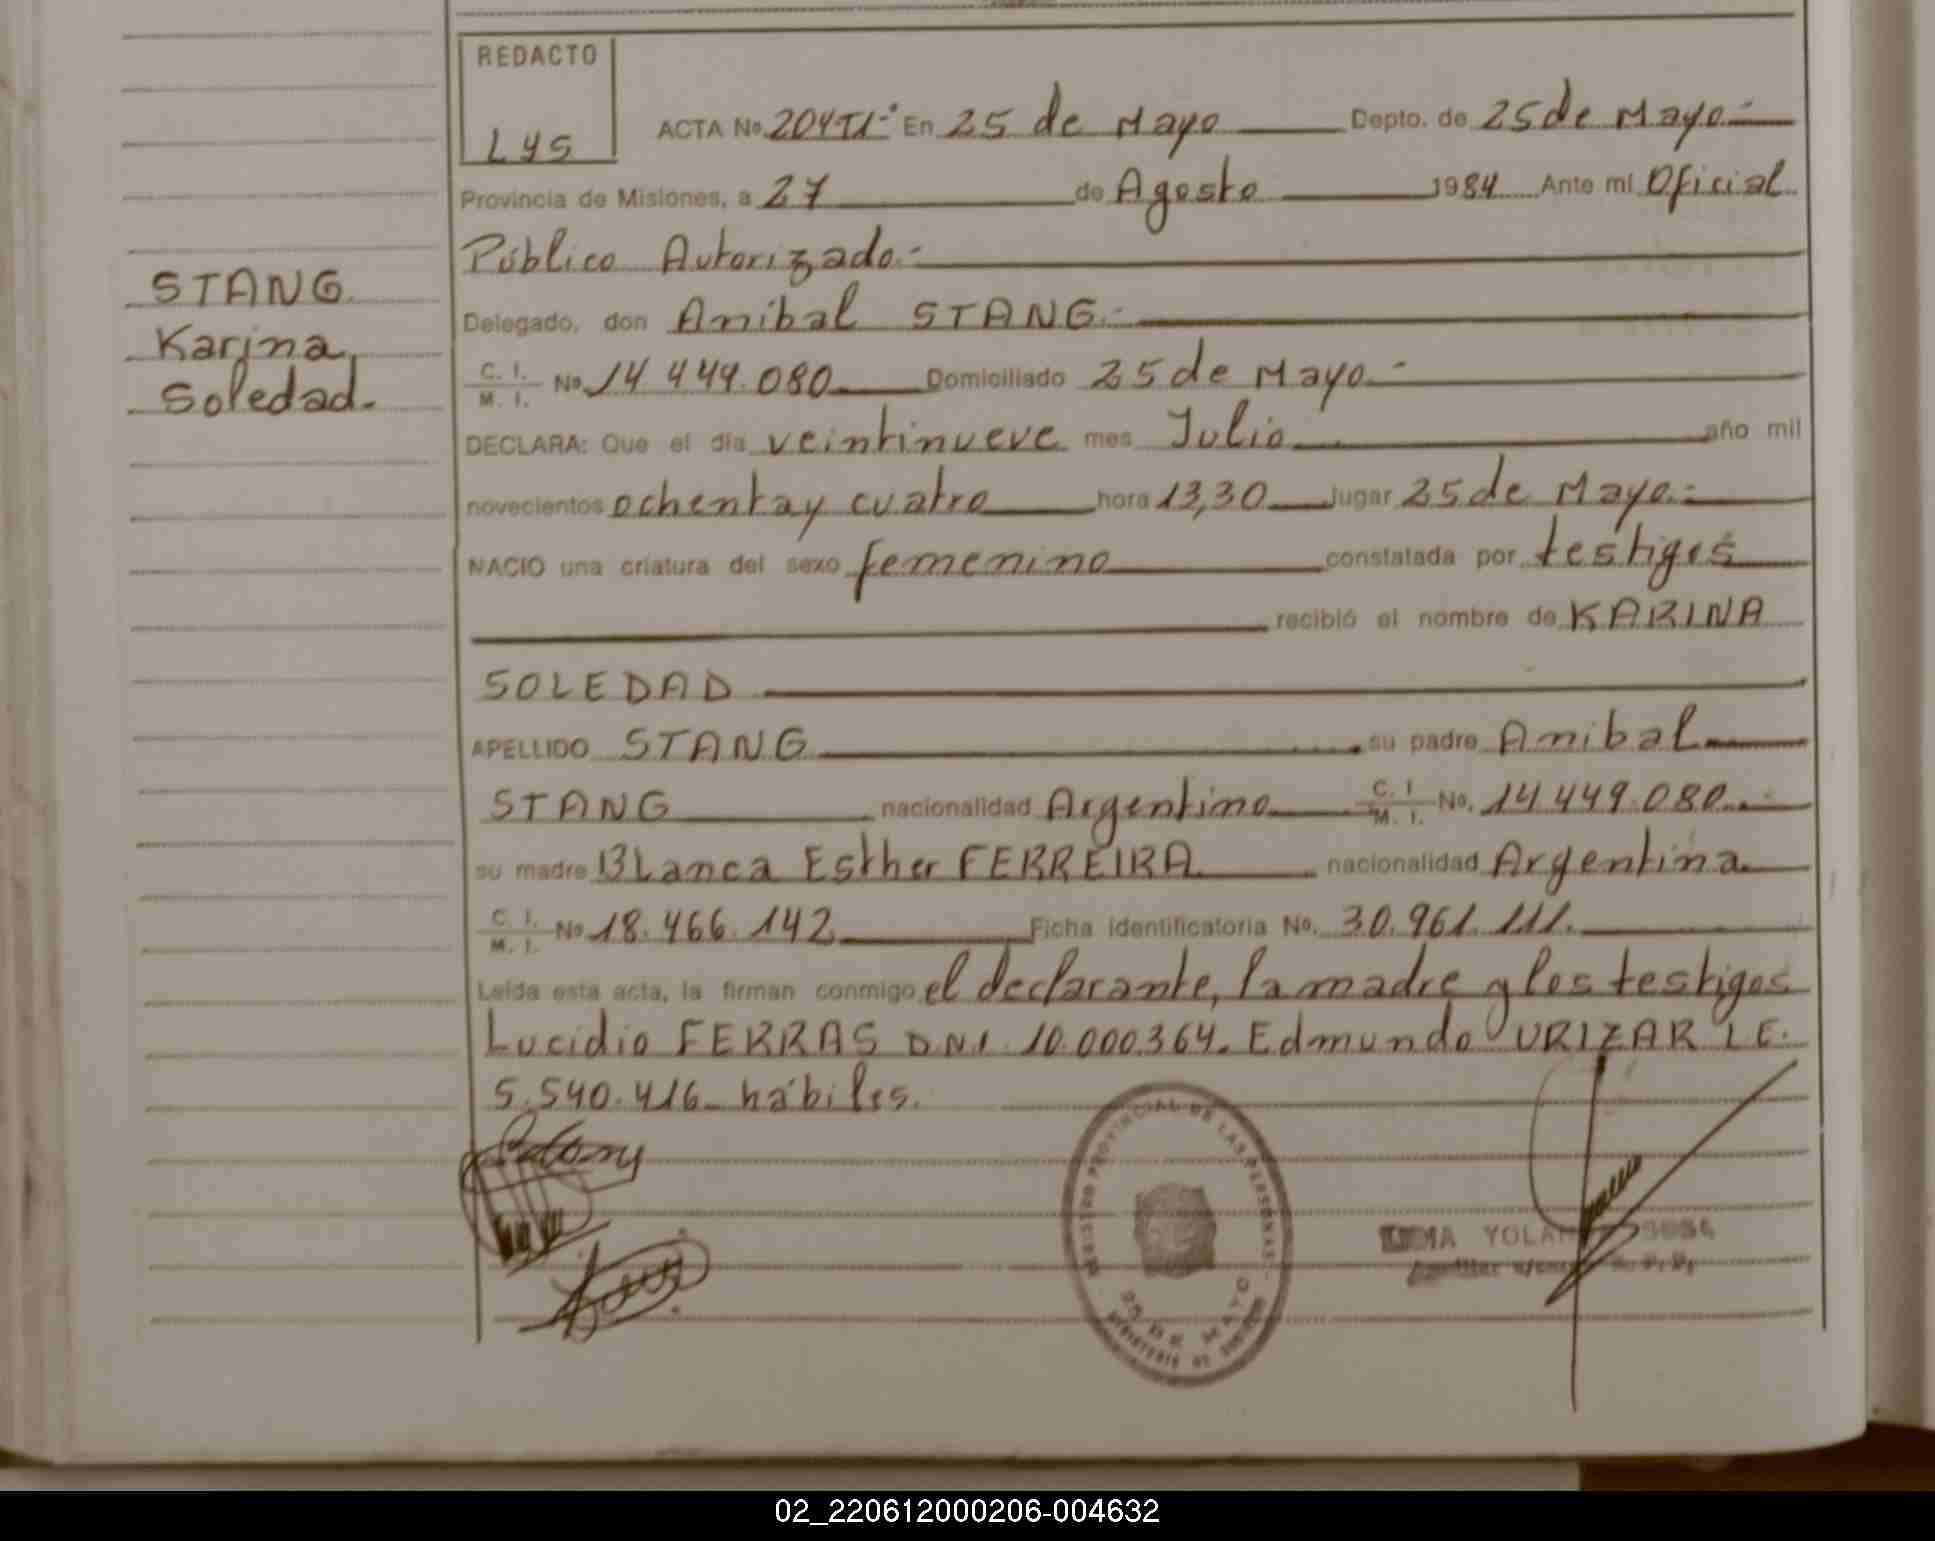 REDACTO
LYS
ACTA No. 204TI.- En 25 de Mayo Depto. de 25 de Mayo.-
Provincia de Misiones, a 27 de Agosto 1984 Ante mí Oficial
Público Autorizado.-
STANG
Karina
Soledad.-
Delegado, don Anibal STANG.-
C. I. M. I. No. 14.449.080 Domiciliado 25 de Mayo.-
DECLARA: Que el día veintinueve mes Julio año mil
novecientos ochenta y cuatro hora 13,30 lugar 25 de Mayo.-
NACIO una criatura del sexo femenino constatada por testigos
recibió el nombre de KARINA
SOLEDAD
APELLIDO STANG su padre Anibal
STANG nacionalidad Argentino C. I. M. I. No. 14.449.080.-
su madre Blanca Esther FERREIRA nacionalidad Argentina
C. I. M. I. No 18.466.142 Ficha identificatoria No. 30.961.111.
Leída esta acta, la firman conmigo el declarante, la madre y los testigos
Lucidio FERRAS DNI 10.000.364. Edmundo URIZAR L.E.
5.540.416 hábiles.
REGISTRO PROVINCIAL DE LAS PERSONAS
25 DE MAYO
MINISTERIO DE GOBIERNO
YOLANDA SOSA
02_220612000206-004632